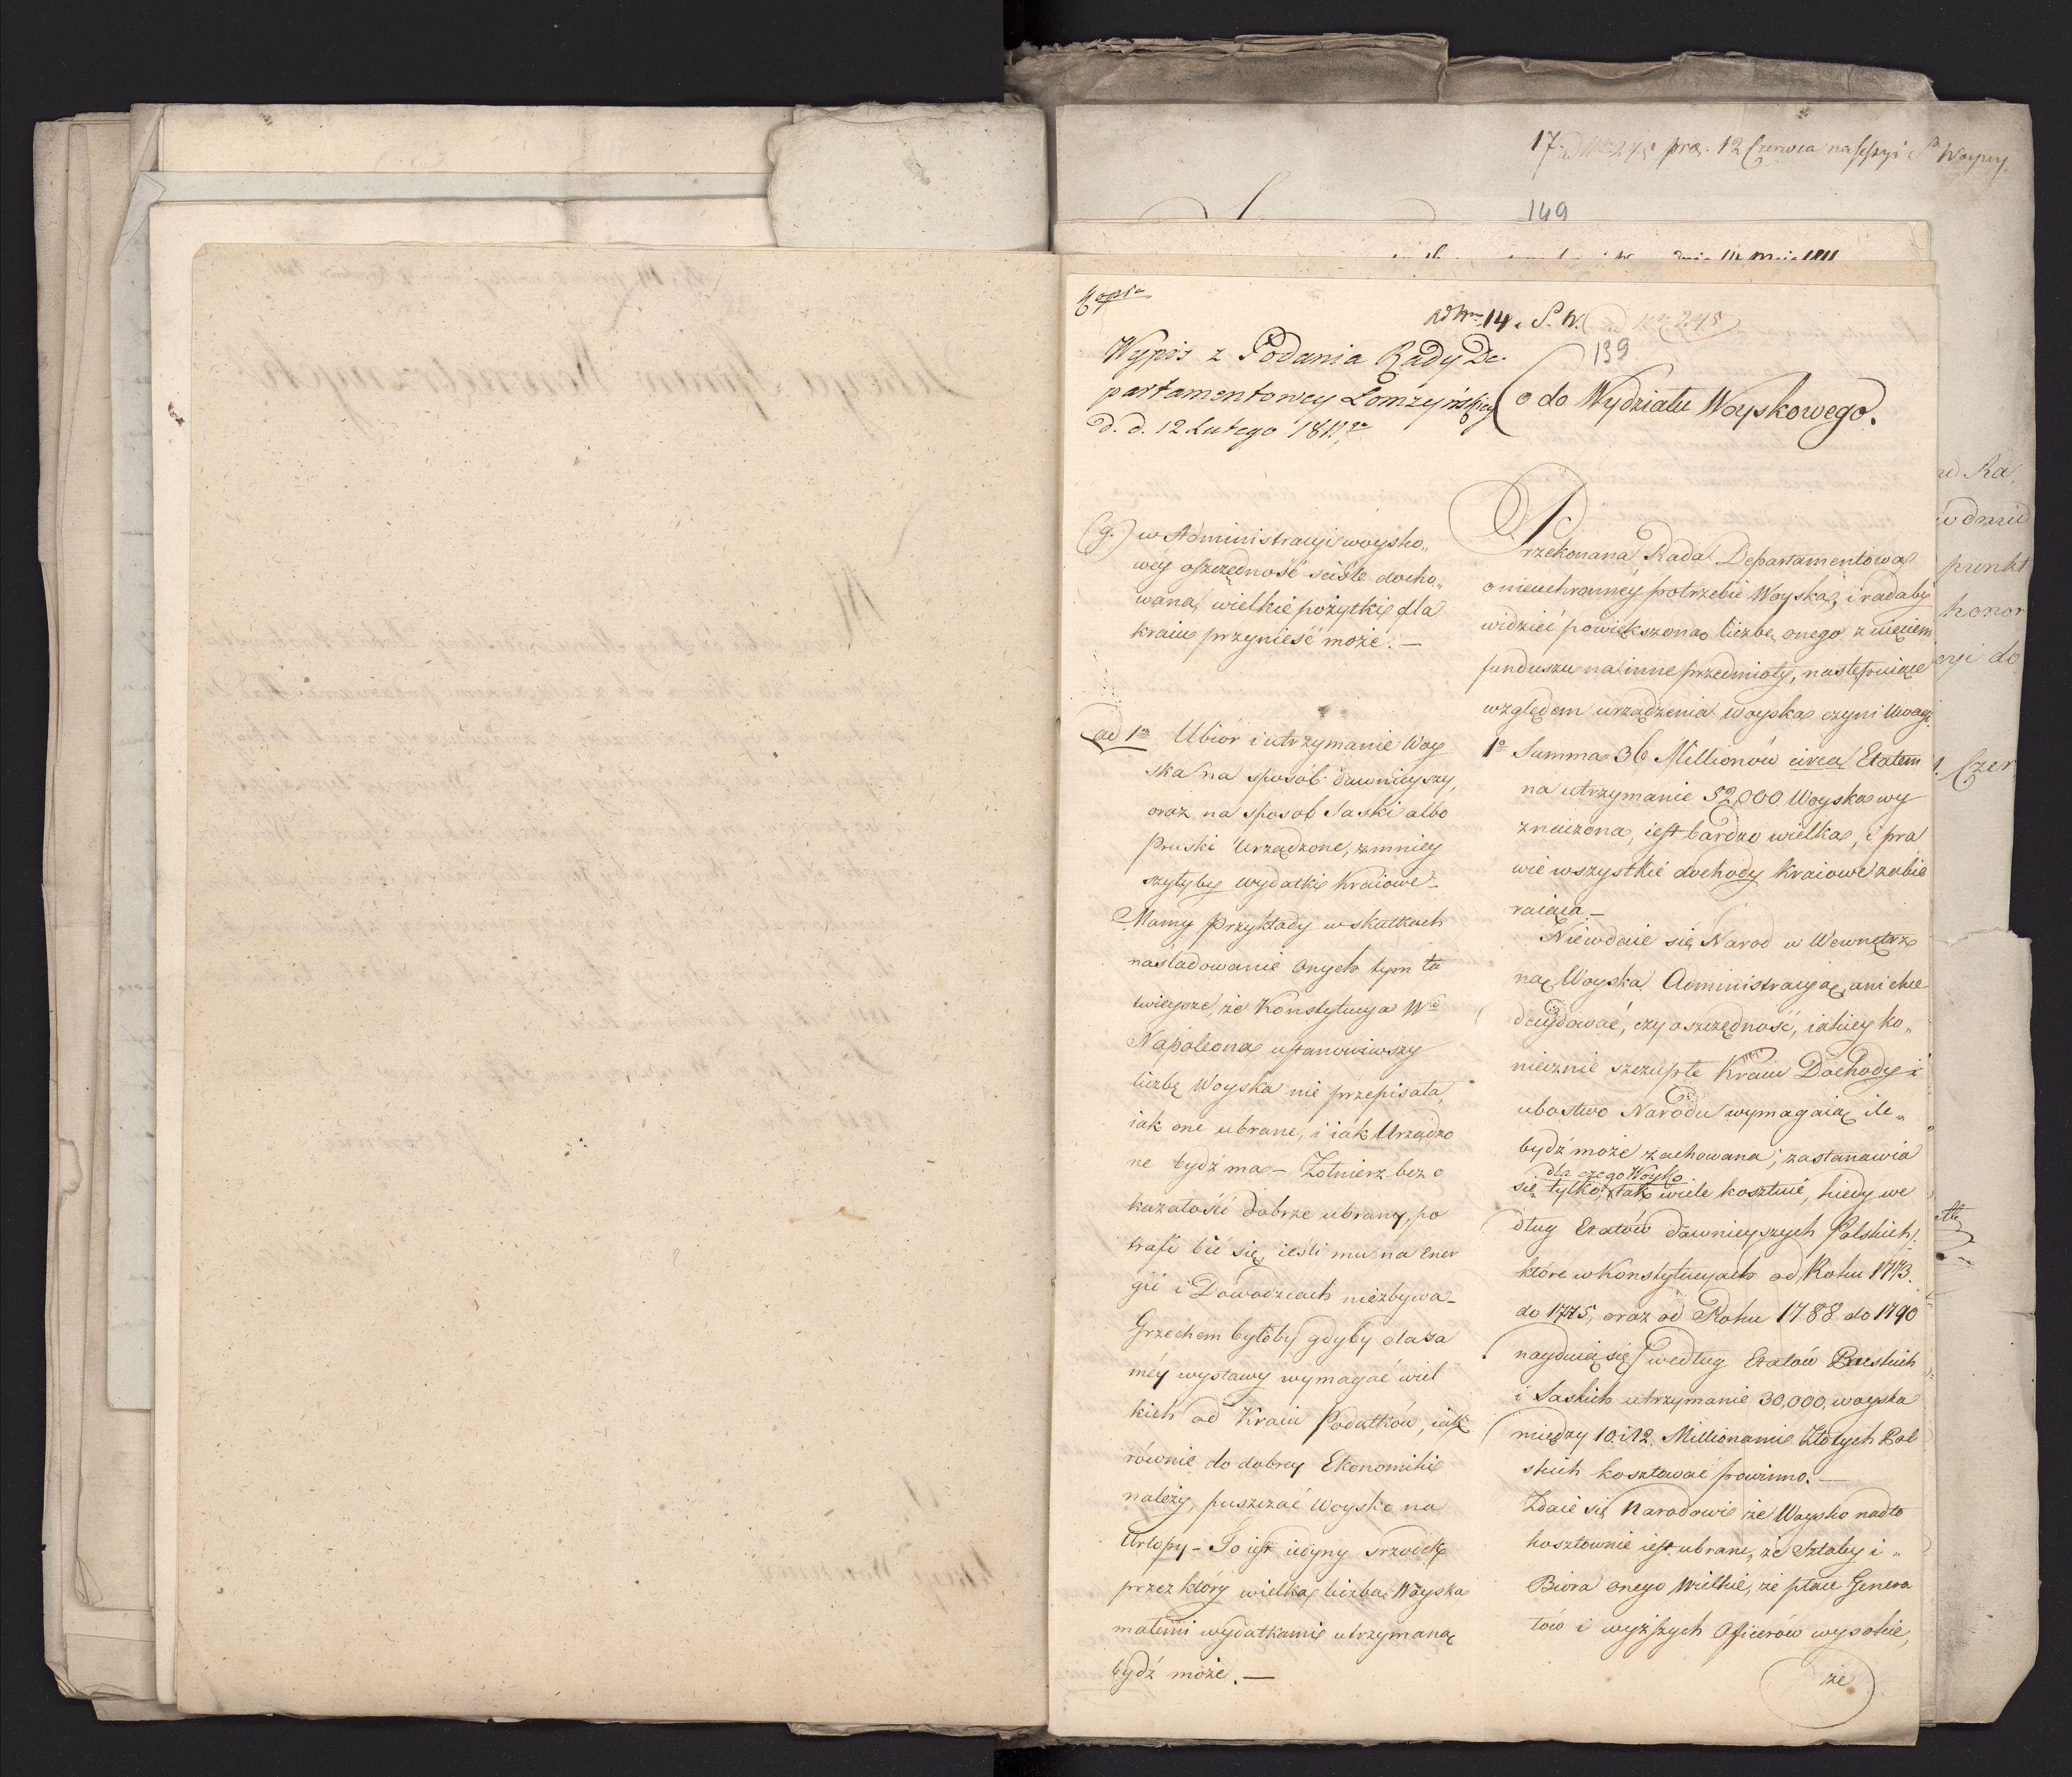 17. ad Nro 245 prez. 12 Czerwca na sessyi
149
dnia 14 Maia 1811
Kopia
ad Nrm 14. S. W. ad Nr 245
139
Wypis z Podania Rady De-
partamentowey Łomżyńskiey
d. d. 12 Lutego 1811
do Wydziału Woyskowego.
(g.) w Administracyi woysko„
wéy oszczędność ściśle docho„
wana, wielkie pożytki dla
kraiu przynieść może. —
ad 1o Ubiór i utrzymanie Woy
ska na sposób dawnieyszy,
oraz na sposob Saski albo
Pruski Urządzone, zmniey
szyłyby wydatki Kraiowe –
Mamy Przykłady w skutkach
naśladowanie onych tym ła
twieysze, że Konstytucya Wo
Napoleona ustanowiwszy
liczbę Woyska nie przepisała,
iak one ubrane, i iak Urządzo
ne bydź ma – Żołnierz bez o
kazałości dobrze ubrany, po
trafi bić się, ieśli mu na Ener
gii i Dowodzcach niezbywa –
Grzechem byłoby gdyby dla sa
méy wystawy wymagać wiel
kich od Kraiu Podatków, iak
równie do dobrey Ekonomiki
należy, puszczać Woysko na
Urlopy – To iest iedyny srzodek
przez który wielka liczba Woyska
małemi wydatkami utrzymana
bydź może. —
Przekonana Rada Departamentowa
o nieuchronnéy potrzebie Woyska, i radaby
widzieć powiększoną liczbę onego z uięciem
funduszu na inne przedmioty, następuiące
względem urządzenia woyska czyni Uwagi.
1o Summa 36 Millionów circa Etatem
na utrzymanie 32,000 Woyska wy
znaczona, iest bardzo wielka, i pra
wie wszystkie dochody Kraiowe zabie
raiąca –
Niewdaie się Narod w Wewnętrz
ną Woyska Administracyą, ani chce
decydować, czy oszczędność, iakiey ko„
niecznie szczupłe Kraiu Dochody i
ubostwo Narodu wymagaią ile„
bydź może zachowana; zastanawia
dla czego Woysko
się tylko, tak wiele kosztuie, kiedy we
dług Etatów dawnieyszych Polskich/:
które w Konstytucyach od Roku 1773.
do 1775, oraz od Roku 1788 do 1790
nayduią się/ według Etatów Pruskich
i Saskich utrzymanie 30,000 woyska
między 10. i 12. Millionami Złotych Pol
skich kosztować powinno. —
Zdaie się Narodowi że Woysko nadto
kosztownie iest ubrane, że Sztaby i„
Biora onego Wielkie, że płace Genera
łów i wyższych Oficerów wysokie,
że